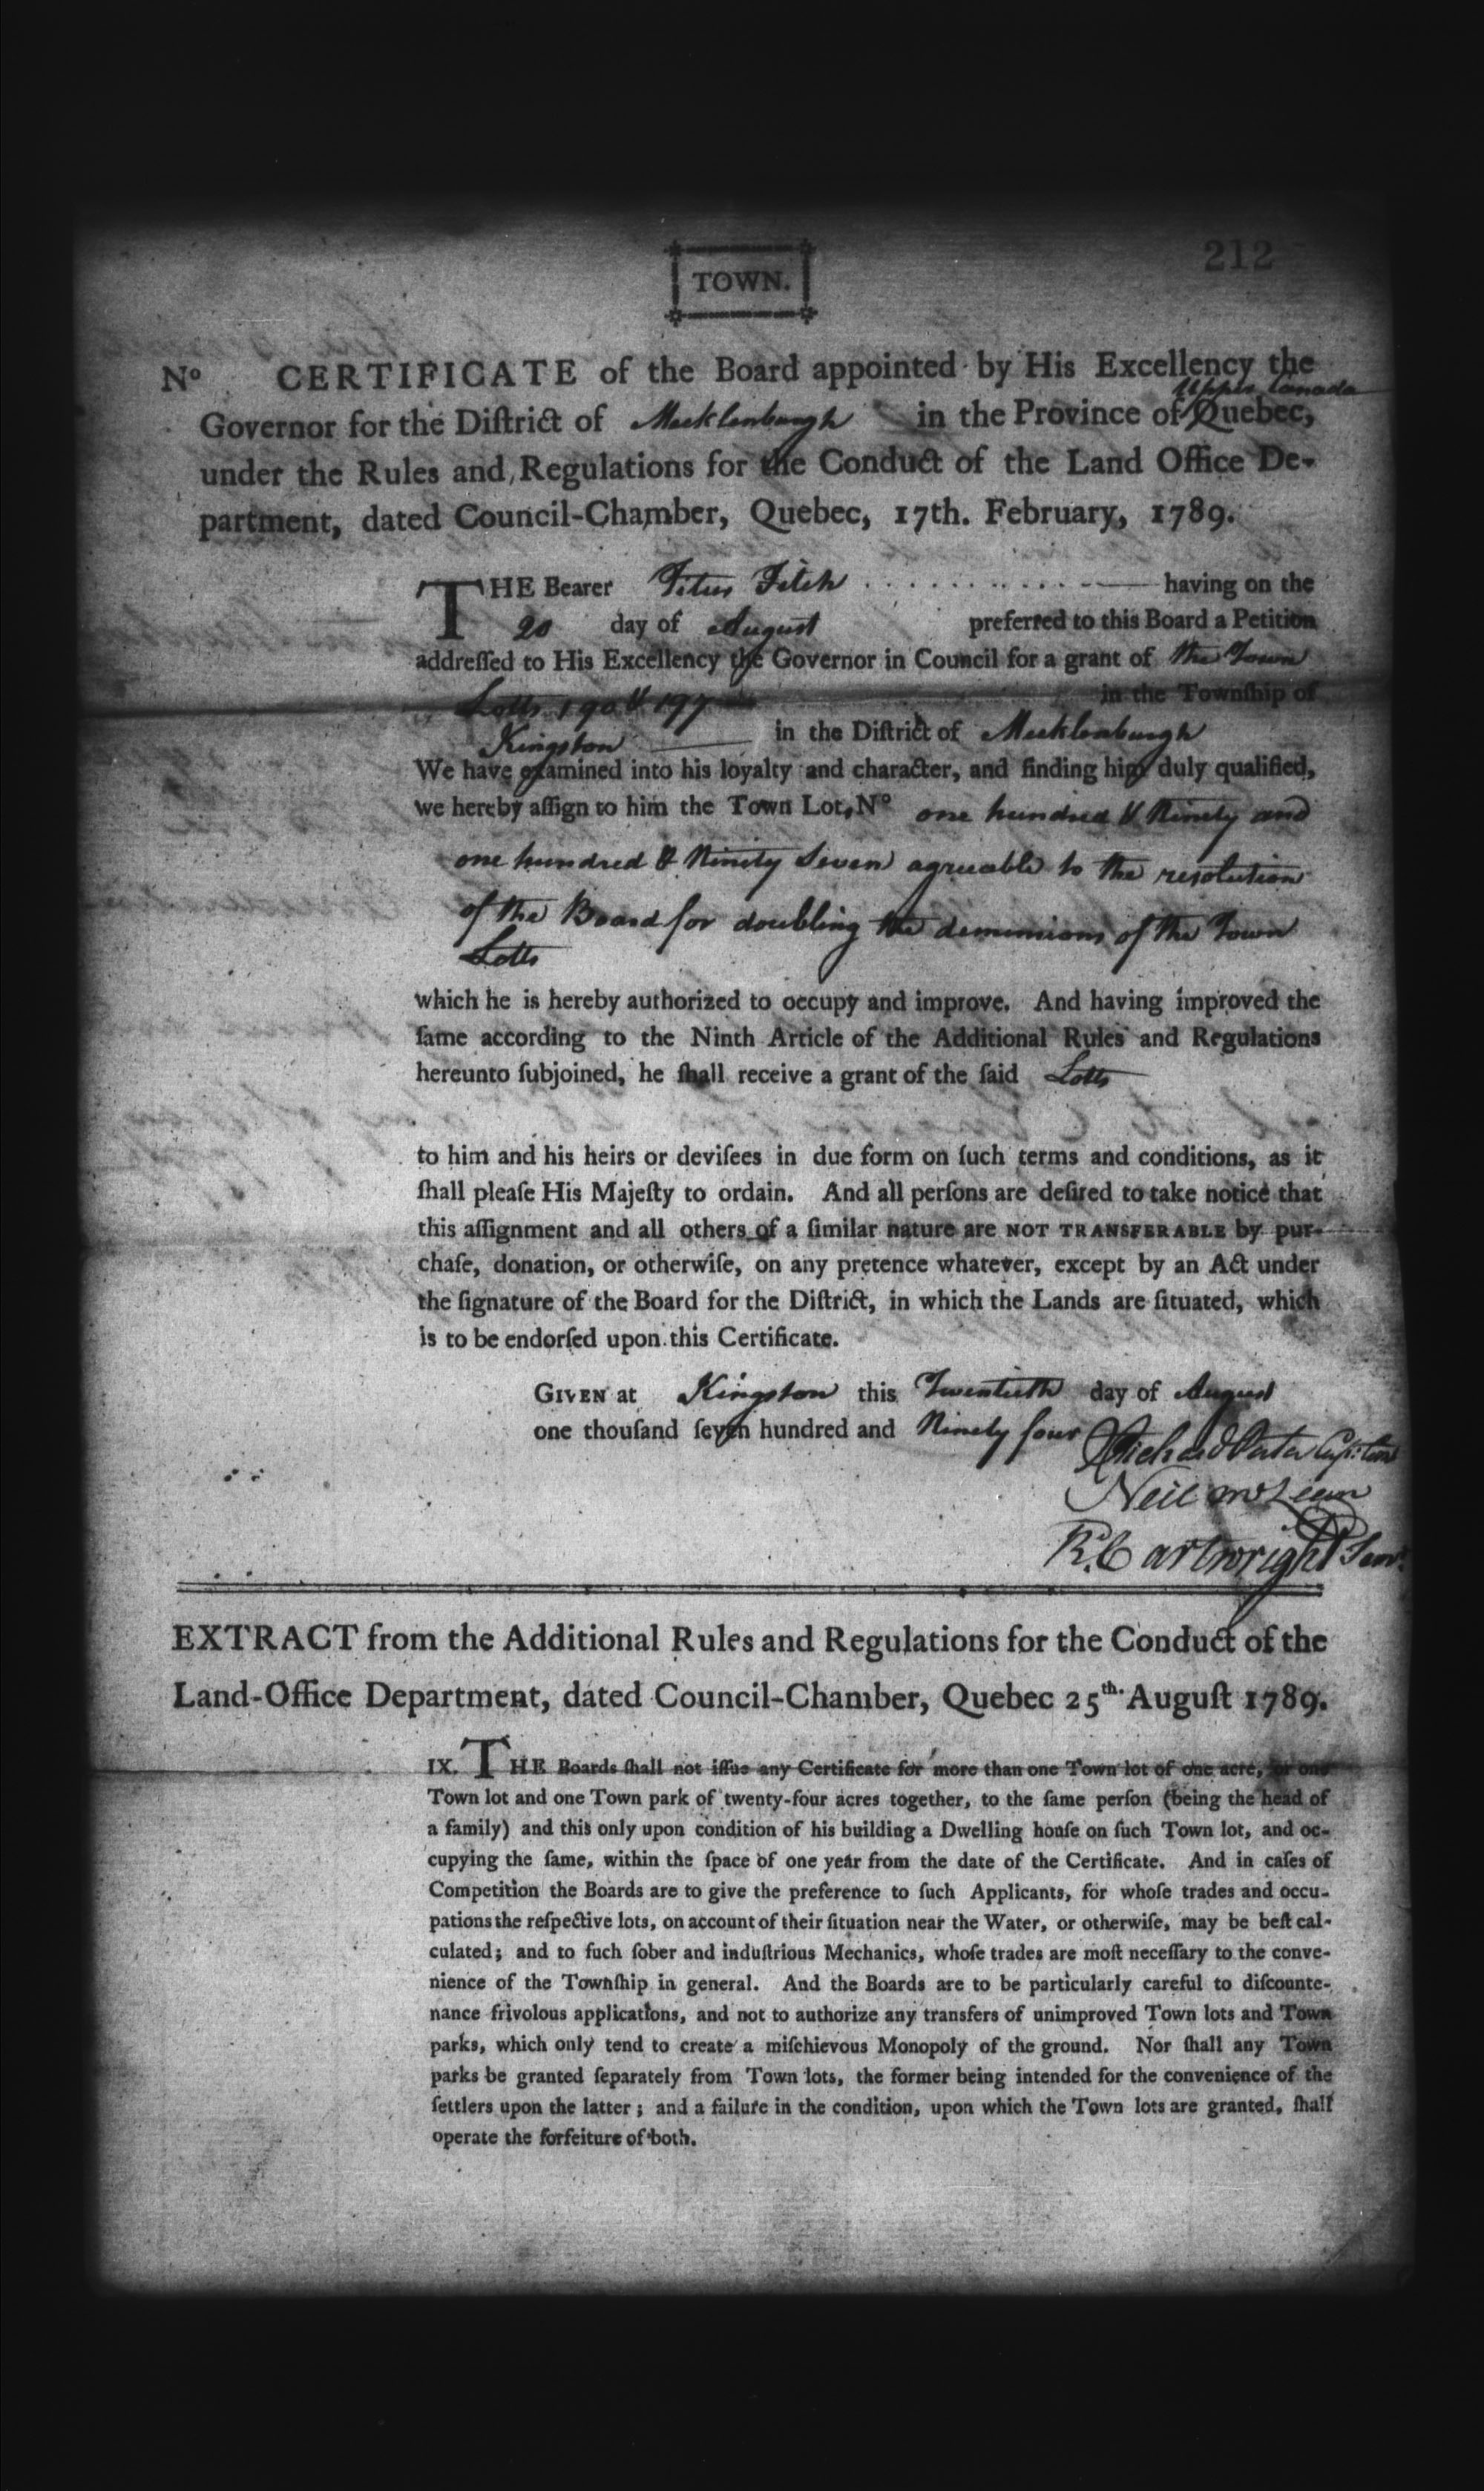 212
TOWN.
Nº CERTIFICATE of the Board appointed by His Excellency the
Upper Canada
Governor for the Diſtrict of Mecklenburgh in the Province of Quebec,
under the Rules and Regulations for the Conduct of the Land Office De-
partment, dated Council-Chamber, Quebec, 17th. February, 1789.
THE Bearer Titus Fitch having on the
20 day of August preferred to this Board a Petition
addreſſed to His Excellency the Governor in Council for a grant of the Town
Lotts 190 & 197 in the Townſhip of
Kingston in the Diſtrict of Mecklenburgh
We have examined into his loyalty and character, and finding him duly qualified,
we hereby aſſign to him the Town Lot, Nº one hundred & Ninety and
one hundred & Ninety Seven agreeable to the resolution
of the Board for doubling the demensions of the Town
Lotts
which he is hereby authorized to occupy and improve. And having improved the
ſame according to the Ninth Article of the Additional Rules and Regulations
hereunto ſubjoined, he ſhall receive a grant of the ſaid Lotts
to him and his heirs or deviſees in due form on ſuch terms and conditions, as it
ſhall pleaſe His Majeſty to ordain. And all perſons are deſired to take notice that
this aſſignment and all others of a ſimilar nature are NOT TRANSFERABLE by pur-
chaſe, donation, or otherwiſe, on any pretence whatever, except by an Act under
the ſignature of the Board for the Diſtrict, in which the Lands are ſituated, which
is to be endorſed upon this Certificate.
GIVEN at Kingston this Twentieth day of August
one thouſand ſeven hundred and Ninety four
Richard Porter Capt.
Neil McLean
R. Cartwright Junr.
EXTRACT from the Additional Rules and Regulations for the Conduct of the
Land-Office Department, dated Council-Chamber, Quebec 25th. Auguſt 1789.
IX. THE Boards ſhall not iſſue any Certificate for more than one Town lot of one acre, or one
Town lot and one Town park of twenty-four acres together, to the ſame perſon (being the head of
a family) and this only upon condition of his building a Dwelling houſe on ſuch Town lot, and oc-
cupying the ſame, within the ſpace of one year from the date of the Certificate. And in caſes of
Competition the Boards are to give the preference to ſuch Applicants, for whoſe trades and occu-
pations the reſpective lots, on account of their ſituation near the Water, or otherwiſe, may be beſt cal-
culated; and to ſuch ſober and induſtrious Mechanics, whoſe trades are moſt neceſſary to the conve-
nience of the Townſhip in general. And the Boards are to be particularly careful to diſcounte-
nance frivolous applications, and not to authorize any transfers of unimproved Town lots and Town
parks, which only tend to create a miſchievous Monopoly of the ground. Nor ſhall any Town
parks be granted ſeparately from Town lots, the former being intended for the convenience of the
ſettlers upon the latter; and a failure in the condition, upon which the Town lots are granted, ſhall
operate the forfeiture of both.